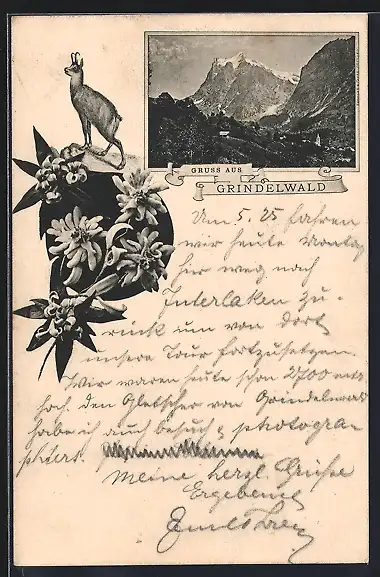 GRUSS AUS
GRINDELWALD
Um 5.25 fahren
wir heute Montag
hier weg nach
Interlaken zu-
rück um von dort
unsere Tour fortzusetzen.
Wir waren heute schon 2700 mtr
hoch. den Gletscher von Grindelwald
habe ich auch besuch & photogra-
phiert.
Meine herzl. Grüsse
Ergebenst